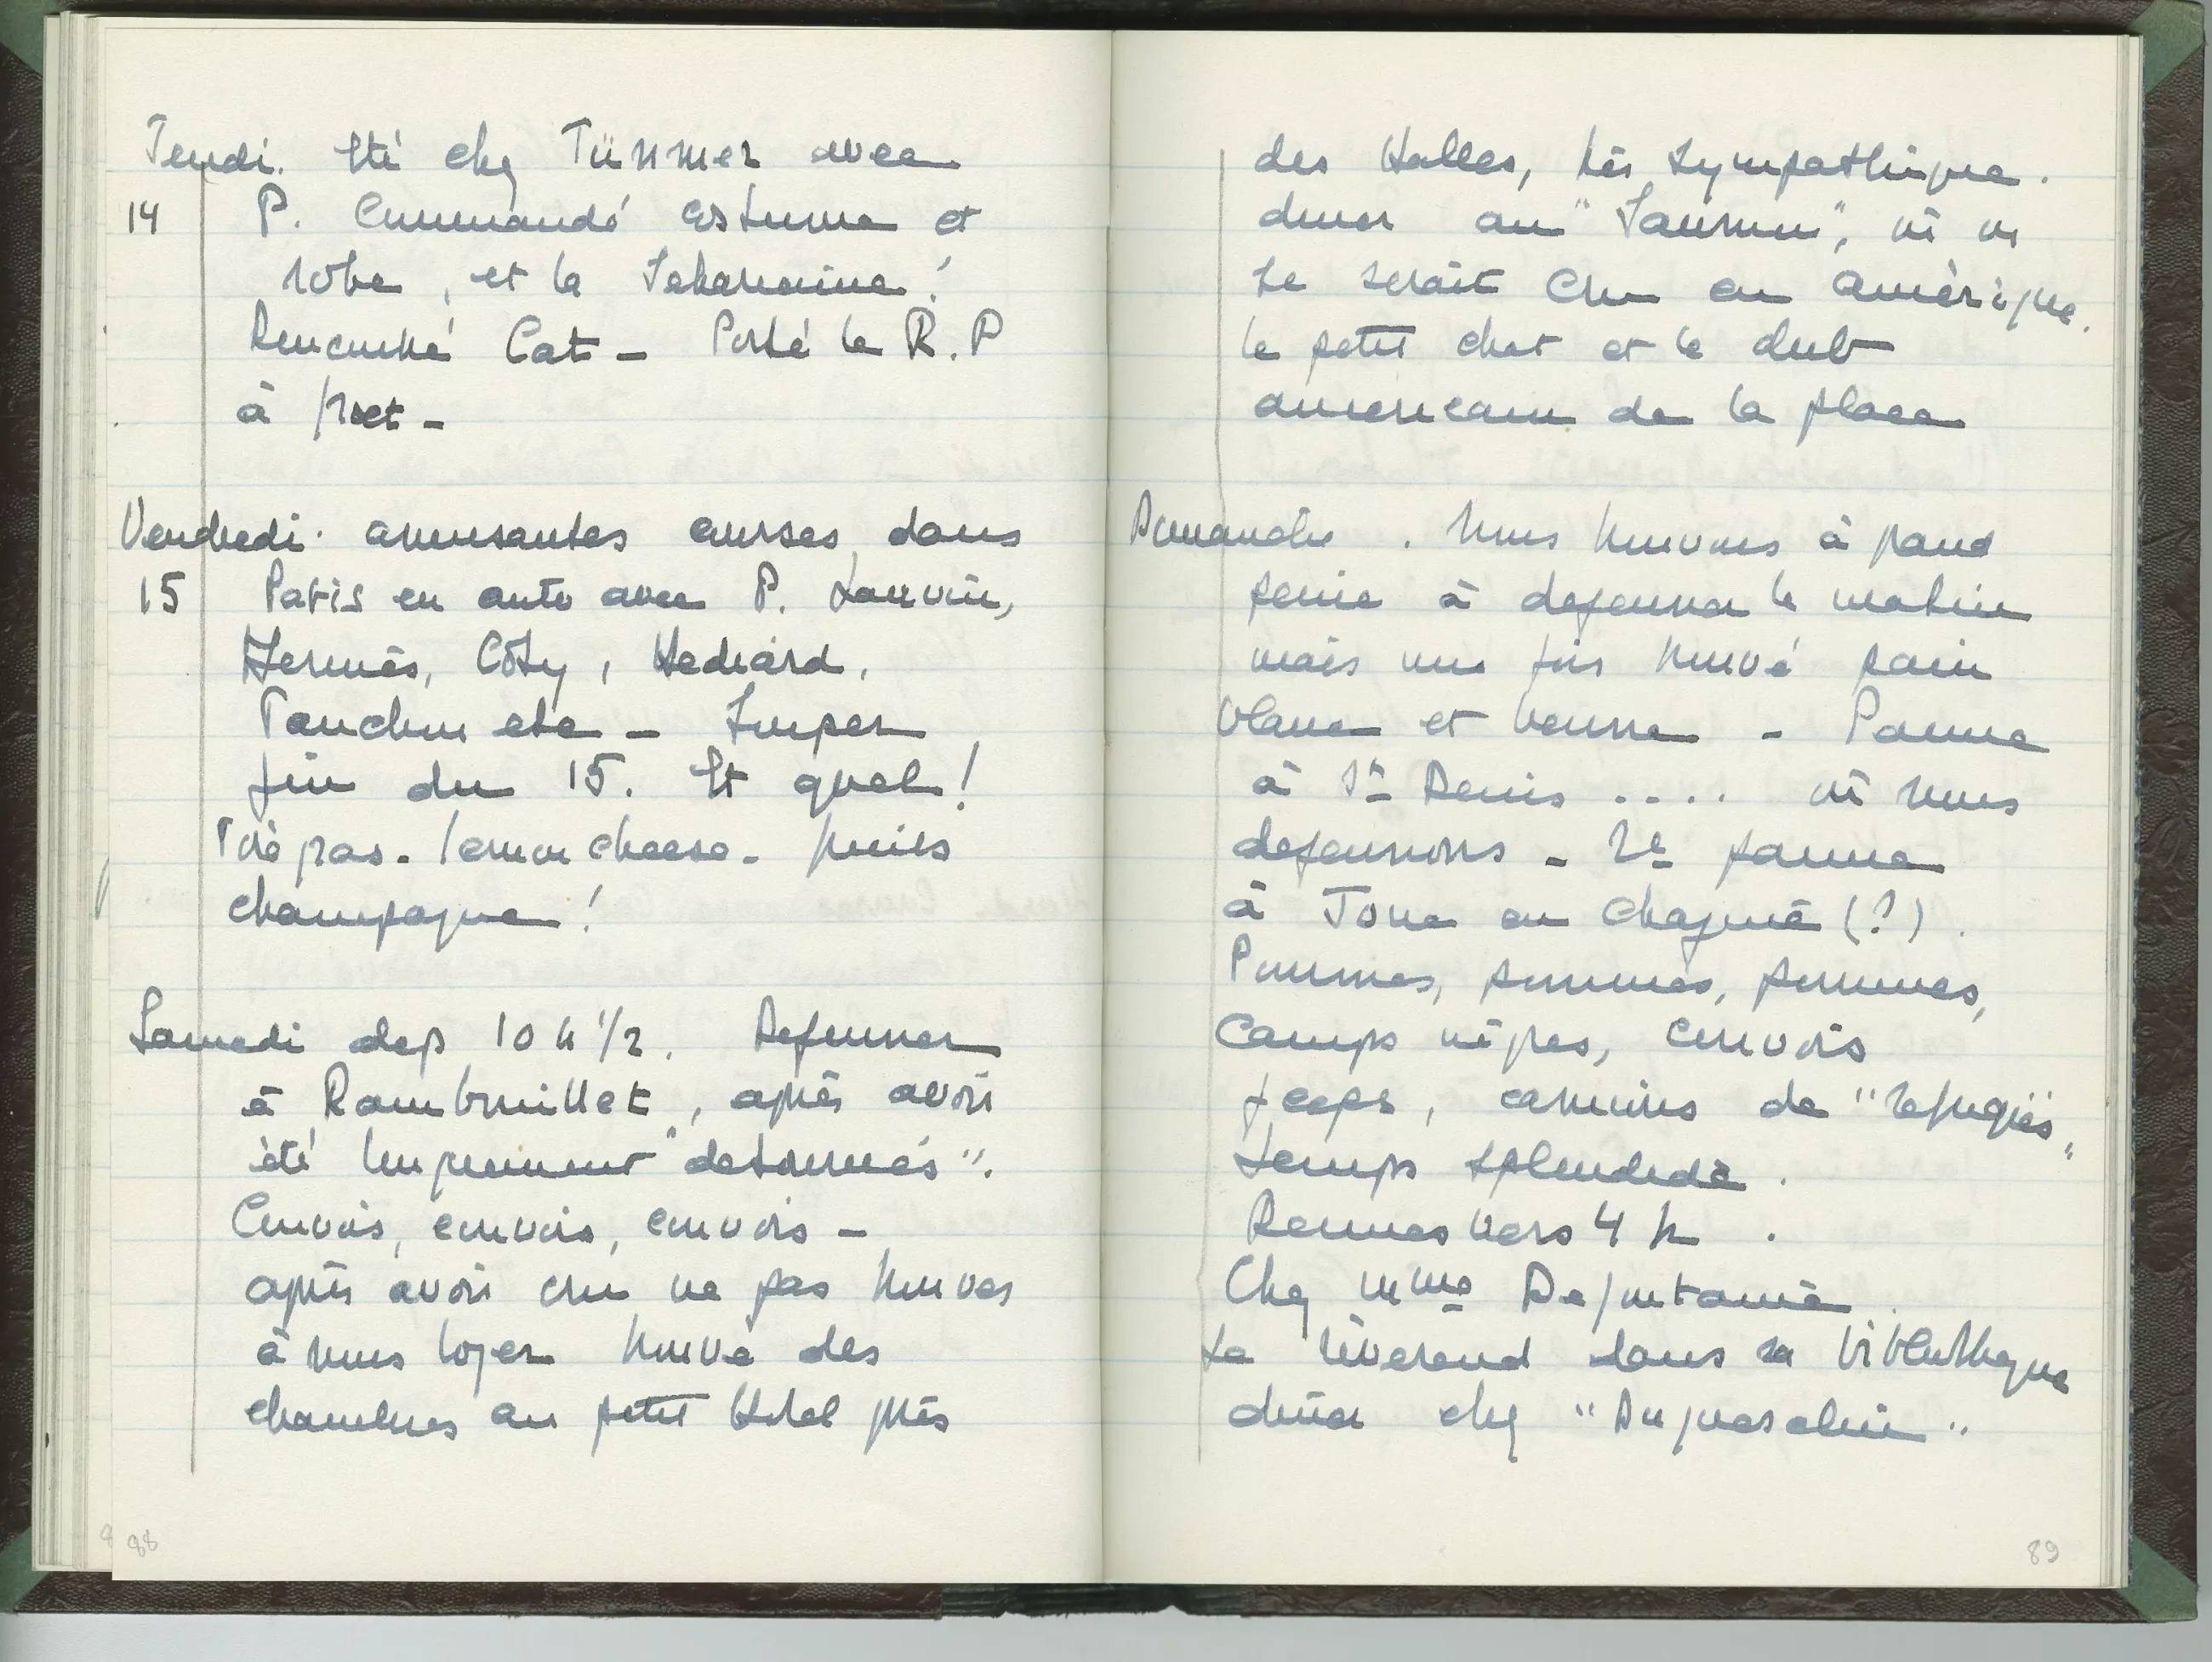 Jeudi. Eté chez Tünmer avec
14 P. Commandé costume et
robe, et la Saharienne!
Rencontré Cat - Porté le R.P
à
Vendredi. amusantes courses dans
15 Paris en auto avec P. Lanvin,
Hermès, Coty, Hediard,
Fauchon etc - Souper
fin du 15. Et quel!
Foie gras. lemon cheese - puits
champagne!
Samedi dep 10 h 1/2. Dejeuner
à Rambouillet, après avoir
été longuement "detournés".
Convois, convois, convois -
après avoir cru ne pas trouver
à nous loger trouvé des
chambres au petit Hotel près
88
des Halles, très sympathique.
diner au "Saumon", où on
se serait cru en Amèrique.
le petit chat et le club
americain de la place
Dimanche. Nous trouvons à grand
peine à dejeuner le matin
mais une fois trouvé pain
blanc et beurre - Panne
à St Denis .... où nous
dejeunons - 2e panne
à Joue en Chagnié (?).
Pommes, pommes, pommes,
Camps nègres, convois
jeeps, camions de "refugiés",
temps splendide.
Rennes vers 4 h.
Chez Mme Defontaine.
Le rèverend dans sa bibliotheque
diner chez "Du Guesclin"
89